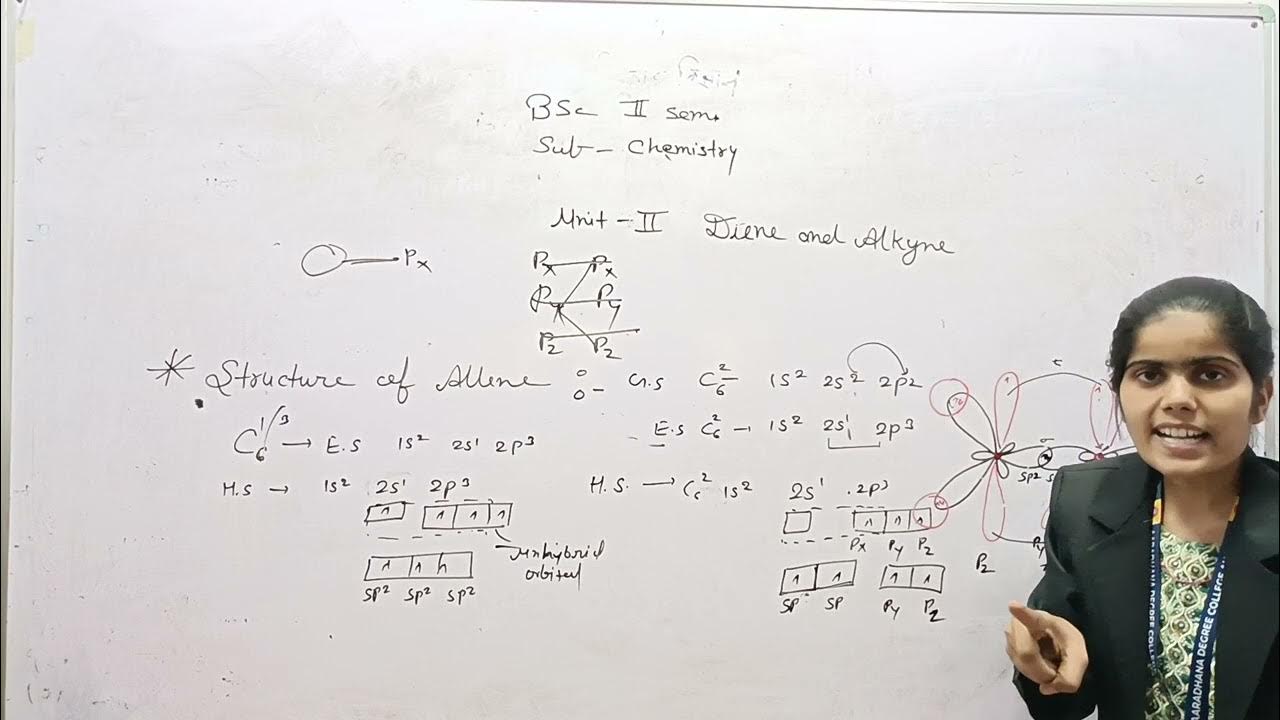 BSc II sem.
Sub- Chemistry
Unit-II Diene and Alkyne
Px
Px Px
Py
Pz Pz
* Structure of Allene :- G.S C₆²- 1s² 2s² 2p²
C₆^1/3 → E.S 1s² 2s¹ 2p³
E.S C₆² - 1s² 2s¹ 2p³
H.S → 1s² 2s¹ 2p³
H.S. → C₆² 1s² 2s¹ .2p³
1 1 1
unhybrid
orbital
1 1 1
sp² sp² sp²
1 1 1
Px Py Pz
1 1 1 1
sp sp Py Pz
sp²
Pz
ARADHANA DEGREE COLLEGE